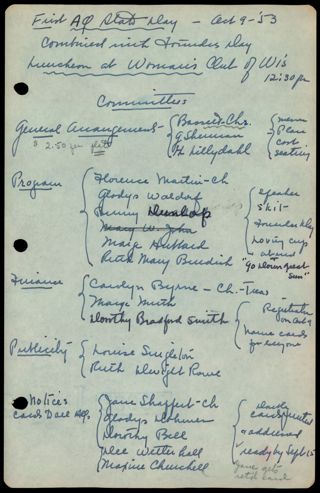 First AΦ State Day - Oct 9-'53
Combined with Founders Day
Luncheon at Woman's Club of Wis
12:30 pm
Committees
General Arrangements - Bassett - Chr.
G Sherman
H Lillydahl
$2.50 per plate
menu
place
cost
seating
Program
Florence Martin - Ch
Gladys Waldorf
Penny Dunlop
Mary W. John
Marge Hibbard
Ruth Mary Burdick
speaker
skit -
Founders Day
Loving cup
award
"Go Down great
Sun"
Finance
Carolyn Byrne - Ch. - Treas
Marge Muth
Dorothy Bradford Smith
Registration
on Oct 9
Name cards
for everyone
Publicity
Louise Singleton
Ruth Dwight Rowe
Notices
Cards Date Adds.
Jane Sheppert - Ch
Gladys
Dorothy Bell
Dee Wetterhall
Maxine Churchill
cards printed
+ addressed
ready by Sept 15
Jane gets
retn card